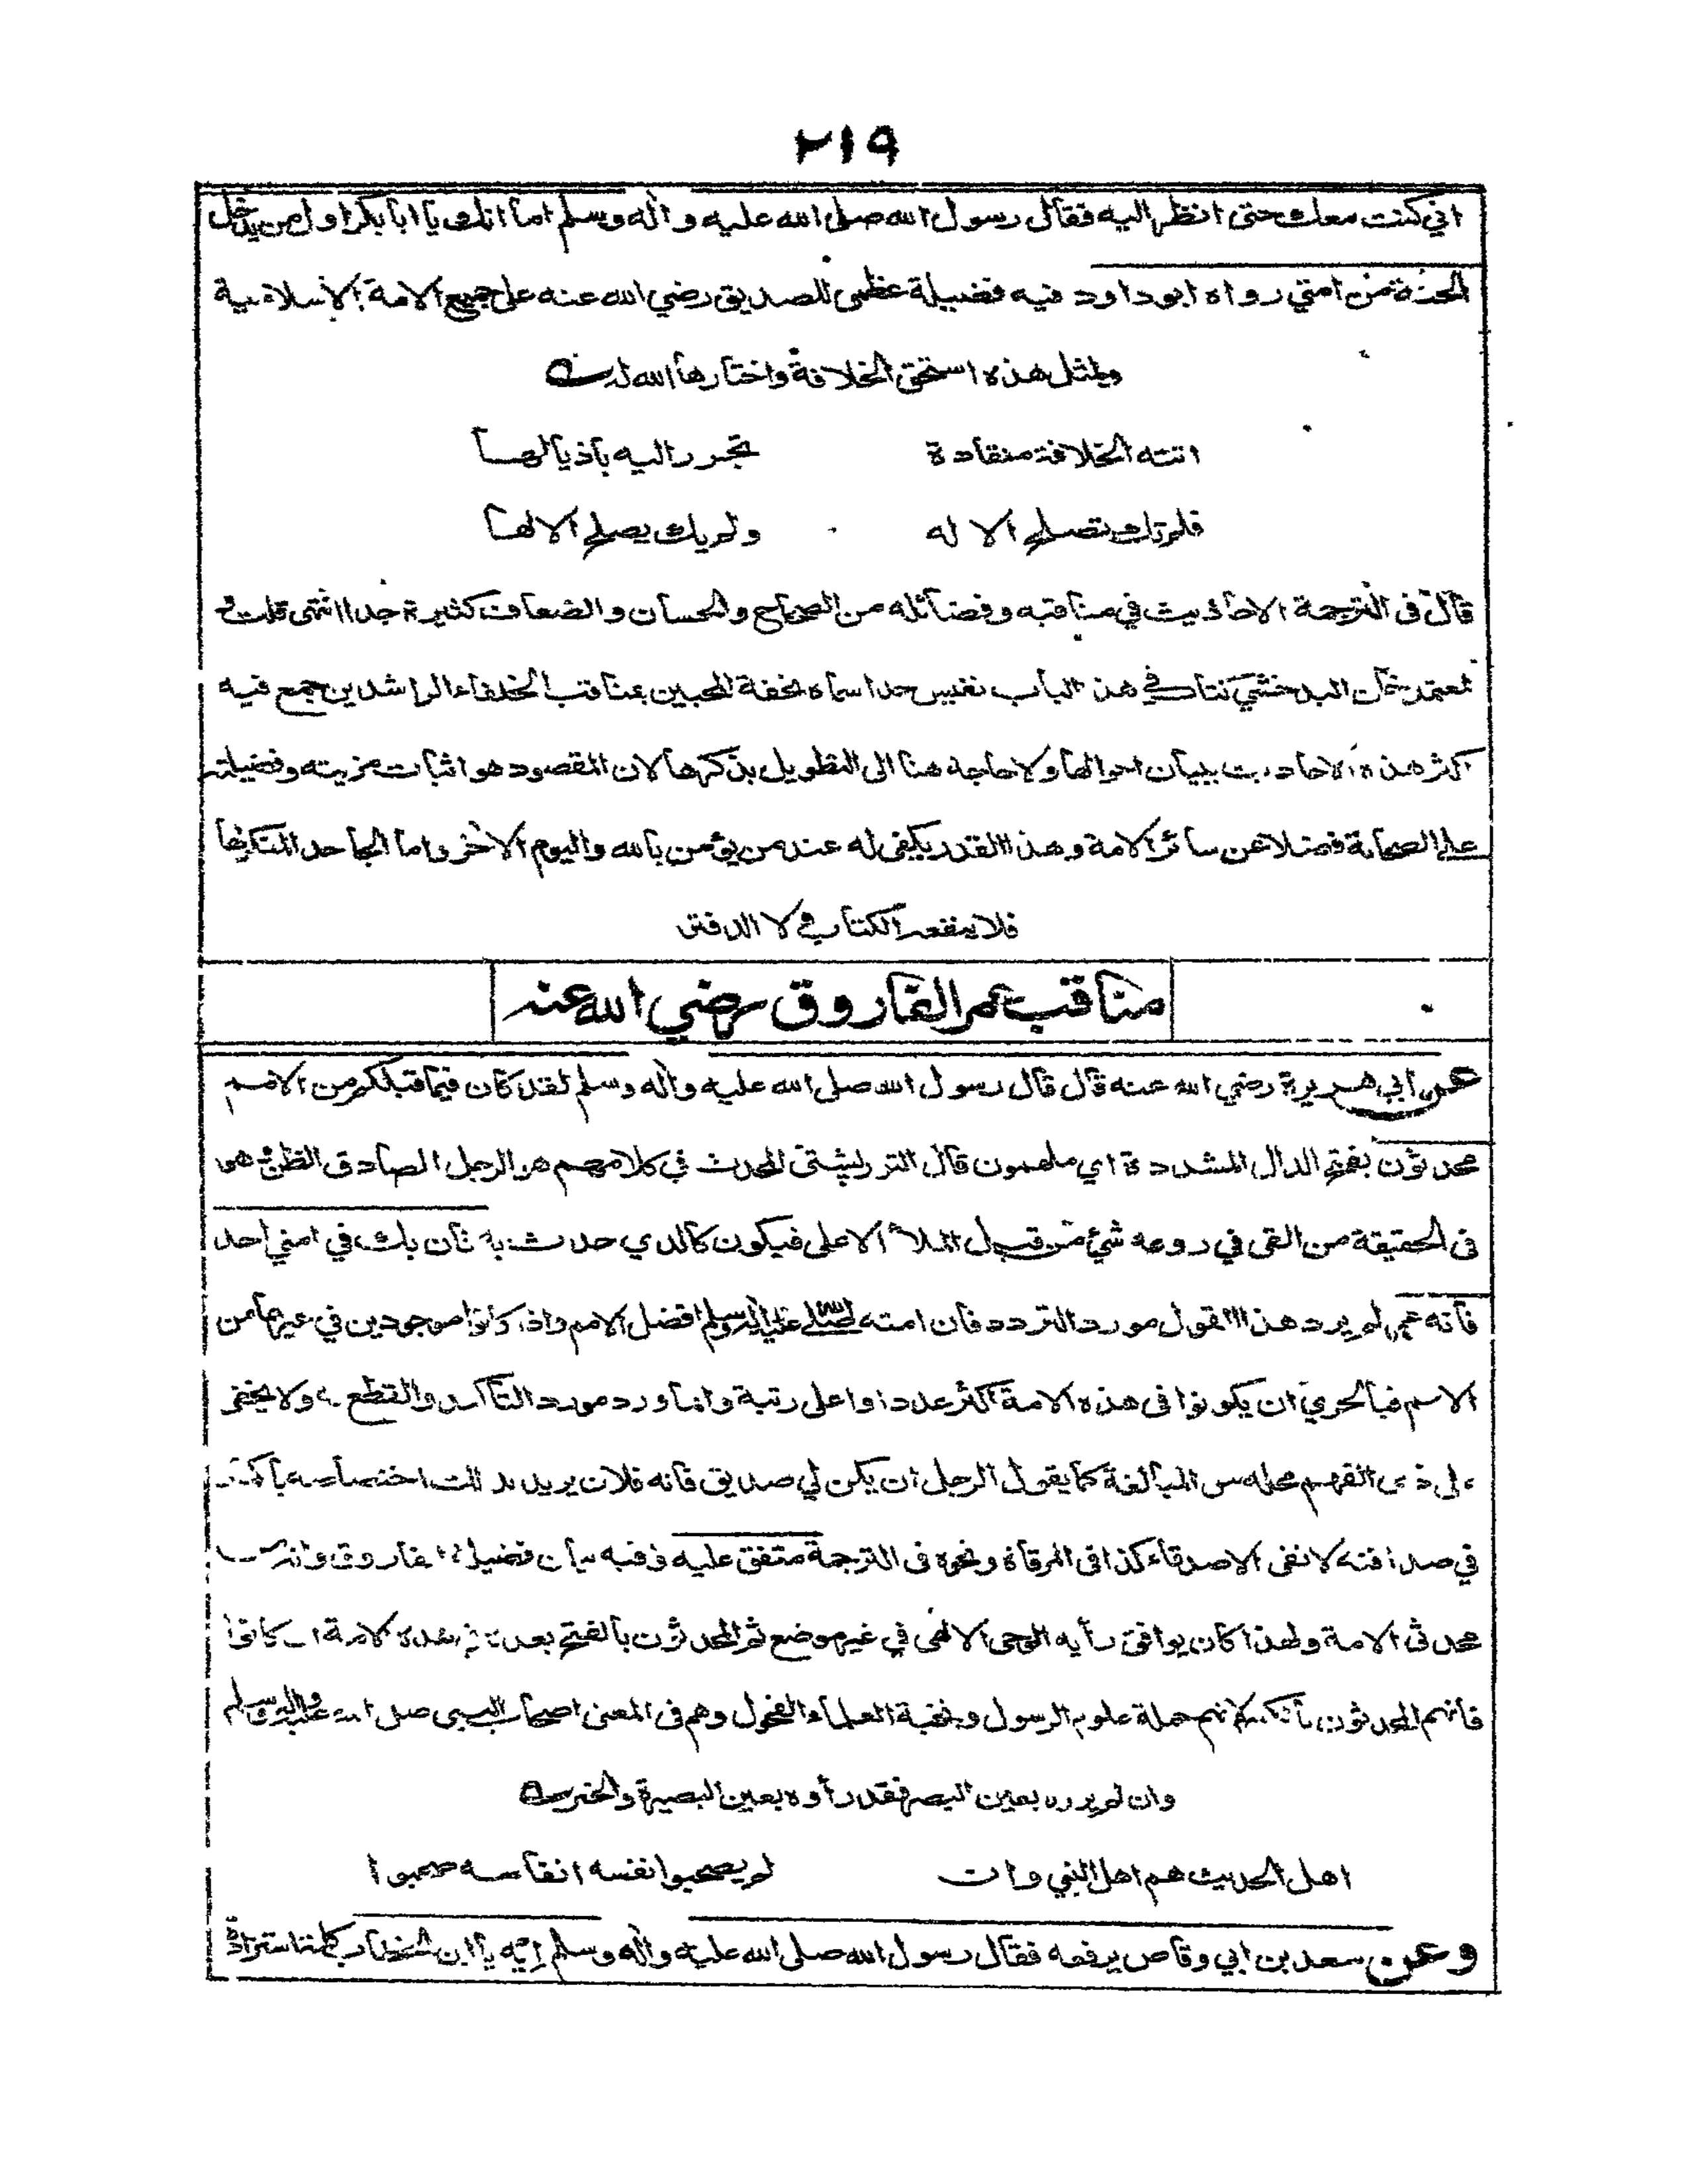 ٢١٩
اني كنت معك حتى انظر اليه فقال رسول الله صلى الله عليه واٰله وسلم اما انك يا ابا بكر اول من يدخل
الجنة من امتي رواه ابو داود فيه فضيلة عظمى للصديق رضي الله عنه على جميع الامة الاسلامية
ولمثل هذه استحق الخلافة واختارها الله له
اتته الخلافة منقادة تجرر اليه باذيالها
فلم تك تصلح الا له ولم يك يصلح الا لها
قال في الترجمة الاحاديث في مناقبه وفضائله من الصحاح والحسان والضعاف كثيرة جدا انتهى قلت و
لمعتمد خان البدخشي كتاب في هذا الباب نفيس جدا سماه تحفة المحبين بمناقب الخلفاء الراشدين جمع فيه
اكثر هذه الاحاديث ببيان احوالها ولا حاجة هنا الى التطويل بذكرها لان المقصود هو اثبات مزيته وفضيلته
على الصحابة فضلا عن سائر الامة وهذا القدر يكفي له عند من يؤمن بالله واليوم الاٰخر واما الجاحد المنكر لها
فلا ينفعه الكتاب ولا الدفتر
مناقب عمر الفاروق رضي الله عنه
عن ابي هريرة رضي الله عنه قال قال رسول الله صلى الله عليه واٰله وسلم لقد كان فيما قبلكم من الامم
محدثون بفتح الدال المشددة اي ملهمون قال التوربشتي المحدث في كلامهم هو الرجل الصادق الظن وهو
في الحقيقة من القي في روعه شئ من قبل الملأ الاعلى فيكون كالذي حدث به فان يك في امتي احد
فانه عمر لم يرد هذا القول مورد التردد فان امته صلى الله عليه واٰله وسلم افضل الامم واذا كانوا موجودين في غيرها من
الامم فبالحري ان يكونوا في هذه الامة اكثر عددا واعلى رتبة وانما ورد مورد التأكيد والقطع ولا يخفى
على ذي الفهم محله من المبالغة كما يقول الرجل ان يكن لي صديق فانه فلان يريد بذلك اختصاصه بالكمال
في صداقته لا نفي الاصدقاء كذا في المرقاة ونحوه في الترجمة متفق عليه وفيه بيان فضيلة الفاروق وانه من
محدثي الامة ولهذا كان يوافق رأيه الوحي الالٰهي في غير موضع ثم المحدثون بالفتح بعده في هذه الامة ان كانوا
فانهم المحدثون بالكسر لانهم حملة علوم الرسول ونخبة العلماء الفحول وهم في المعنى اصحاب النبي صلى الله عليه واٰله وسلم
وان لم يروه بعين البصر فقد رأوه بعين البصيرة والخبر
اهل الحديث هم اهل النبي وان لم يصحبوا نفسه انفاسه صحبوا
وعن سعد بن ابي وقاص يرفعه فقال رسول الله صلى الله عليه واٰله وسلم إيه يا ابن الخطاب كلمة استزادة